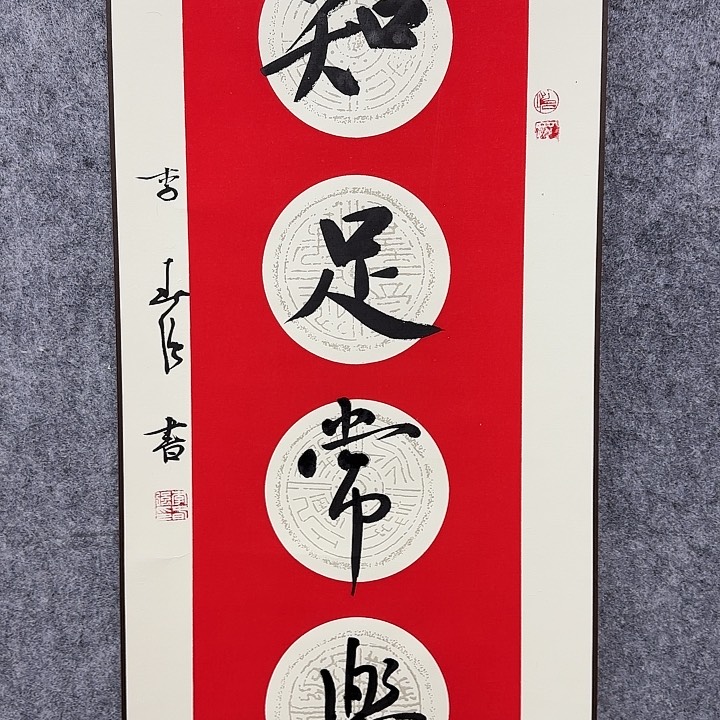 知足常樂
李 书